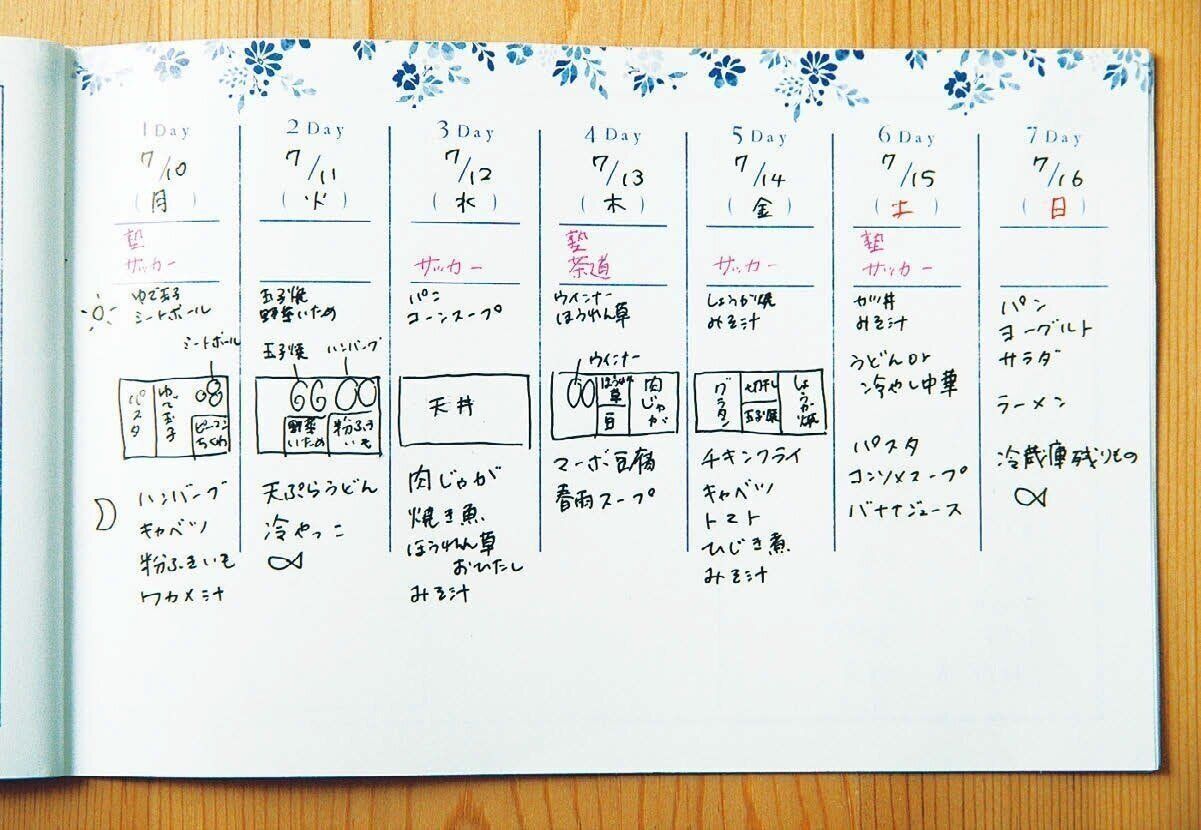 1 Day
7/10
(月)
塾
サッカー
ゆで玉子
ミートボール
ミートボール
パスタ
ゆで玉子
ピーマン
ちくわ
ハンバーグ
キャベツ
粉ふきいも
ワカメ汁
2 Day
7/11
(火)
玉子焼
野菜いため
玉子焼
ハンバーグ
野菜
いため
粉ふき
いも
天ぷらうどん
冷やっこ
3 Day
7/12
(水)
サッカー
パン
コーンスープ
天丼
肉じゃが
焼き魚
ほうれん草
おひたし
みそ汁
4 Day
7/13
(木)
塾
茶道
ウインナー
ほうれん草
ウインナー
ほうれん
草
肉じゃが
マーボ豆腐
春雨スープ
5 Day
7/14
(金)
サッカー
しょうが焼
みそ汁
グラタン
切干し
玉子焼
しょうが焼
チキンフライ
キャベツ
トマト
ひじき煮
みそ汁
6 Day
7/15
(土)
塾
サッカー
カツ丼
みそ汁
うどんor
冷やし中華
パスタ
コンソメスープ
バナナジュース
7 Day
7/16
(日)
パン
ヨーグルト
サラダ
ラーメン
冷蔵庫残りもの